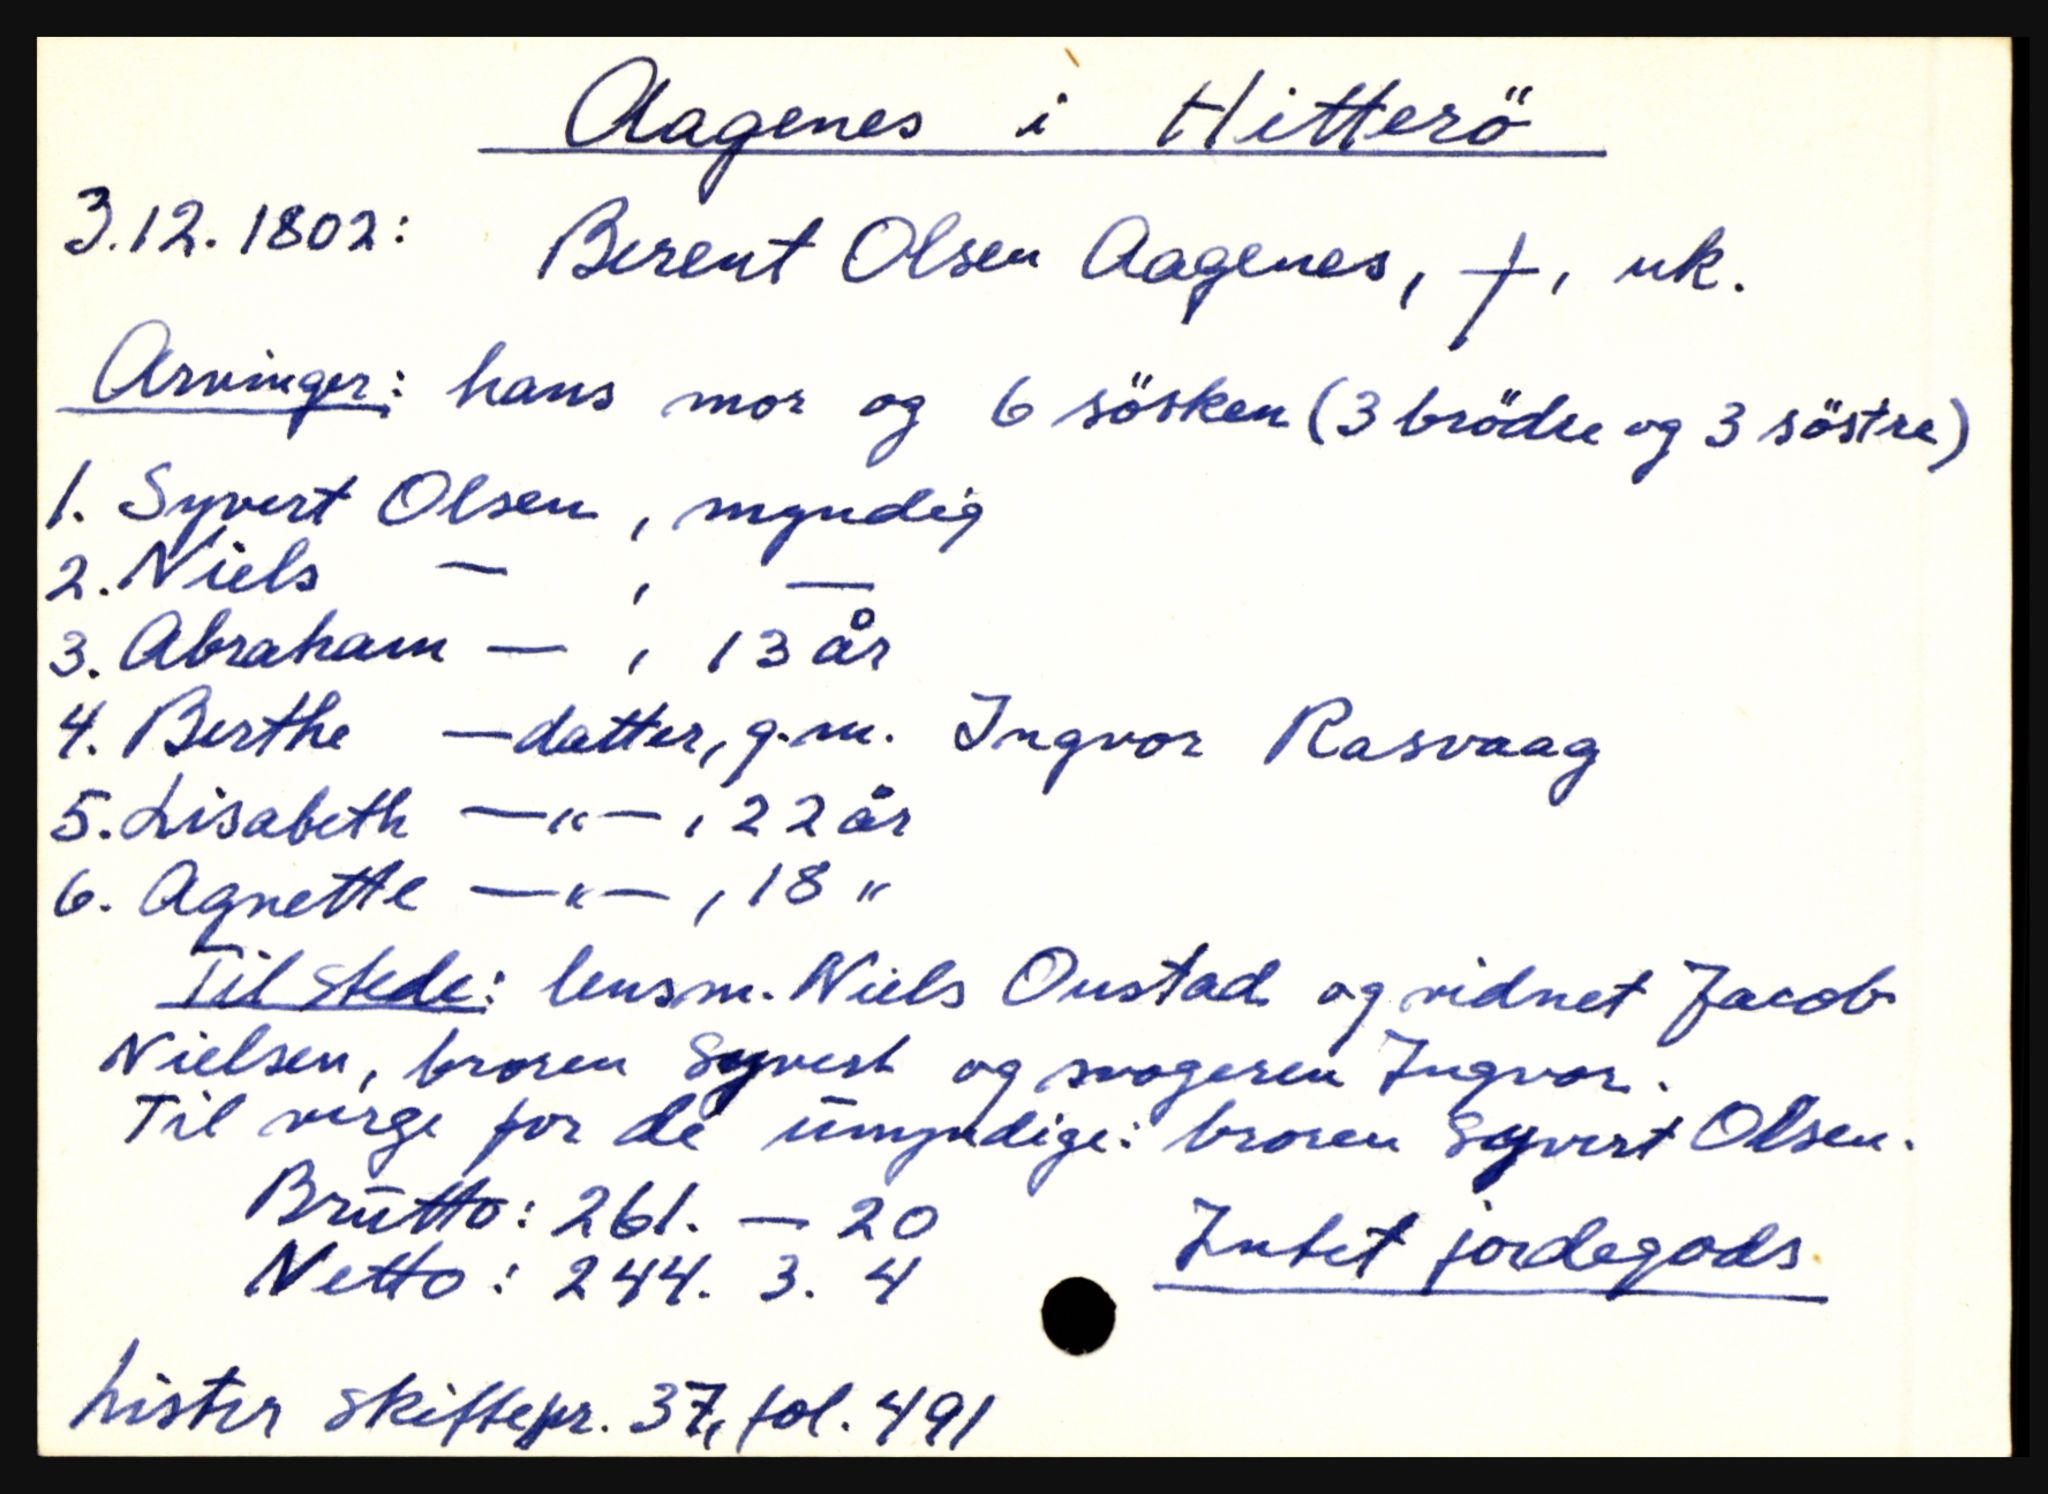 Aagenes i Hitterö
3.12.1802: Berent Olsen Aagenes, †, uk.
Arvinger: hans mor og 6 søsken (3 brödre og 3 söstre)
1. Syvert Olsen, myndig
2. Niels — , —
3. Abraham — , 13 år
4. Berthe —datter, g.m. Ingvor Rasvaag
5. Lisabeth —"— , 22 år
6. Agnette —"— , 18 "
Til stede: lensm. Niels Oustad og vidnet Jacob
Nielsen, broren Syvert og svogeren Ingvor.
Til verge for de umyndige: broren Syvert Olsen.
Brutto: 261. — 20
Netto: 244. 3. 4
Intet jordegods
Lister skiftepr. 37, fol. 491